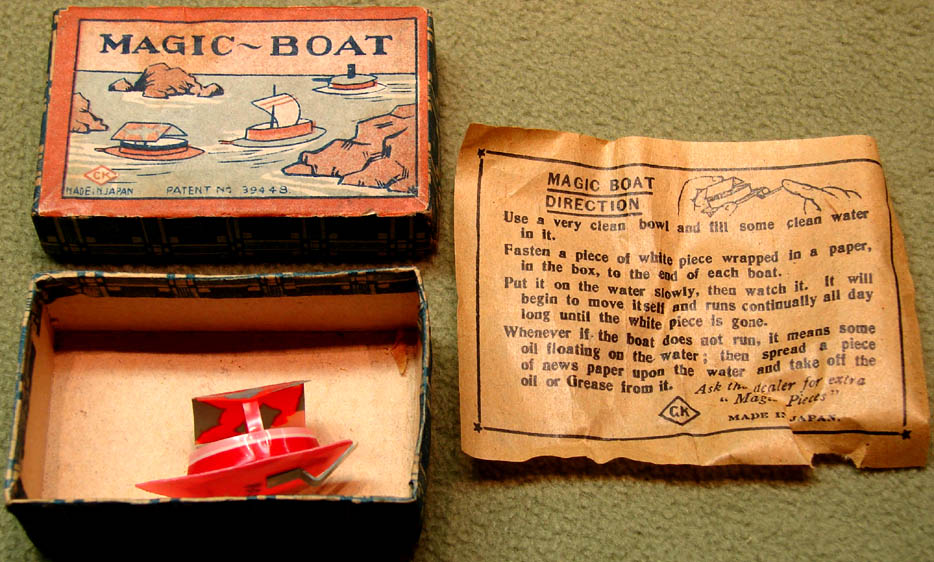 MAGIC~BOAT
CK
MADE IN JAPAN
PATENT NO 39448.
MAGIC BOAT
DIRECTION
Use a very clean bowl and fill some clean water
in it.
Fasten a piece of white piece wrapped in a paper,
in the box, to the end of each boat.
Put it on the water slowly, then watch it. It will
begin to move itself and runs continually all day
long until the white piece is gone.
Whenever if the boat does not run, it means some
oil floating on the water; then spread a piece
of news paper upon the water and take off the
oil or Grease from it.
Ask the dealer for extra
"Magic Pieces"
C.K
MADE IN JAPAN.